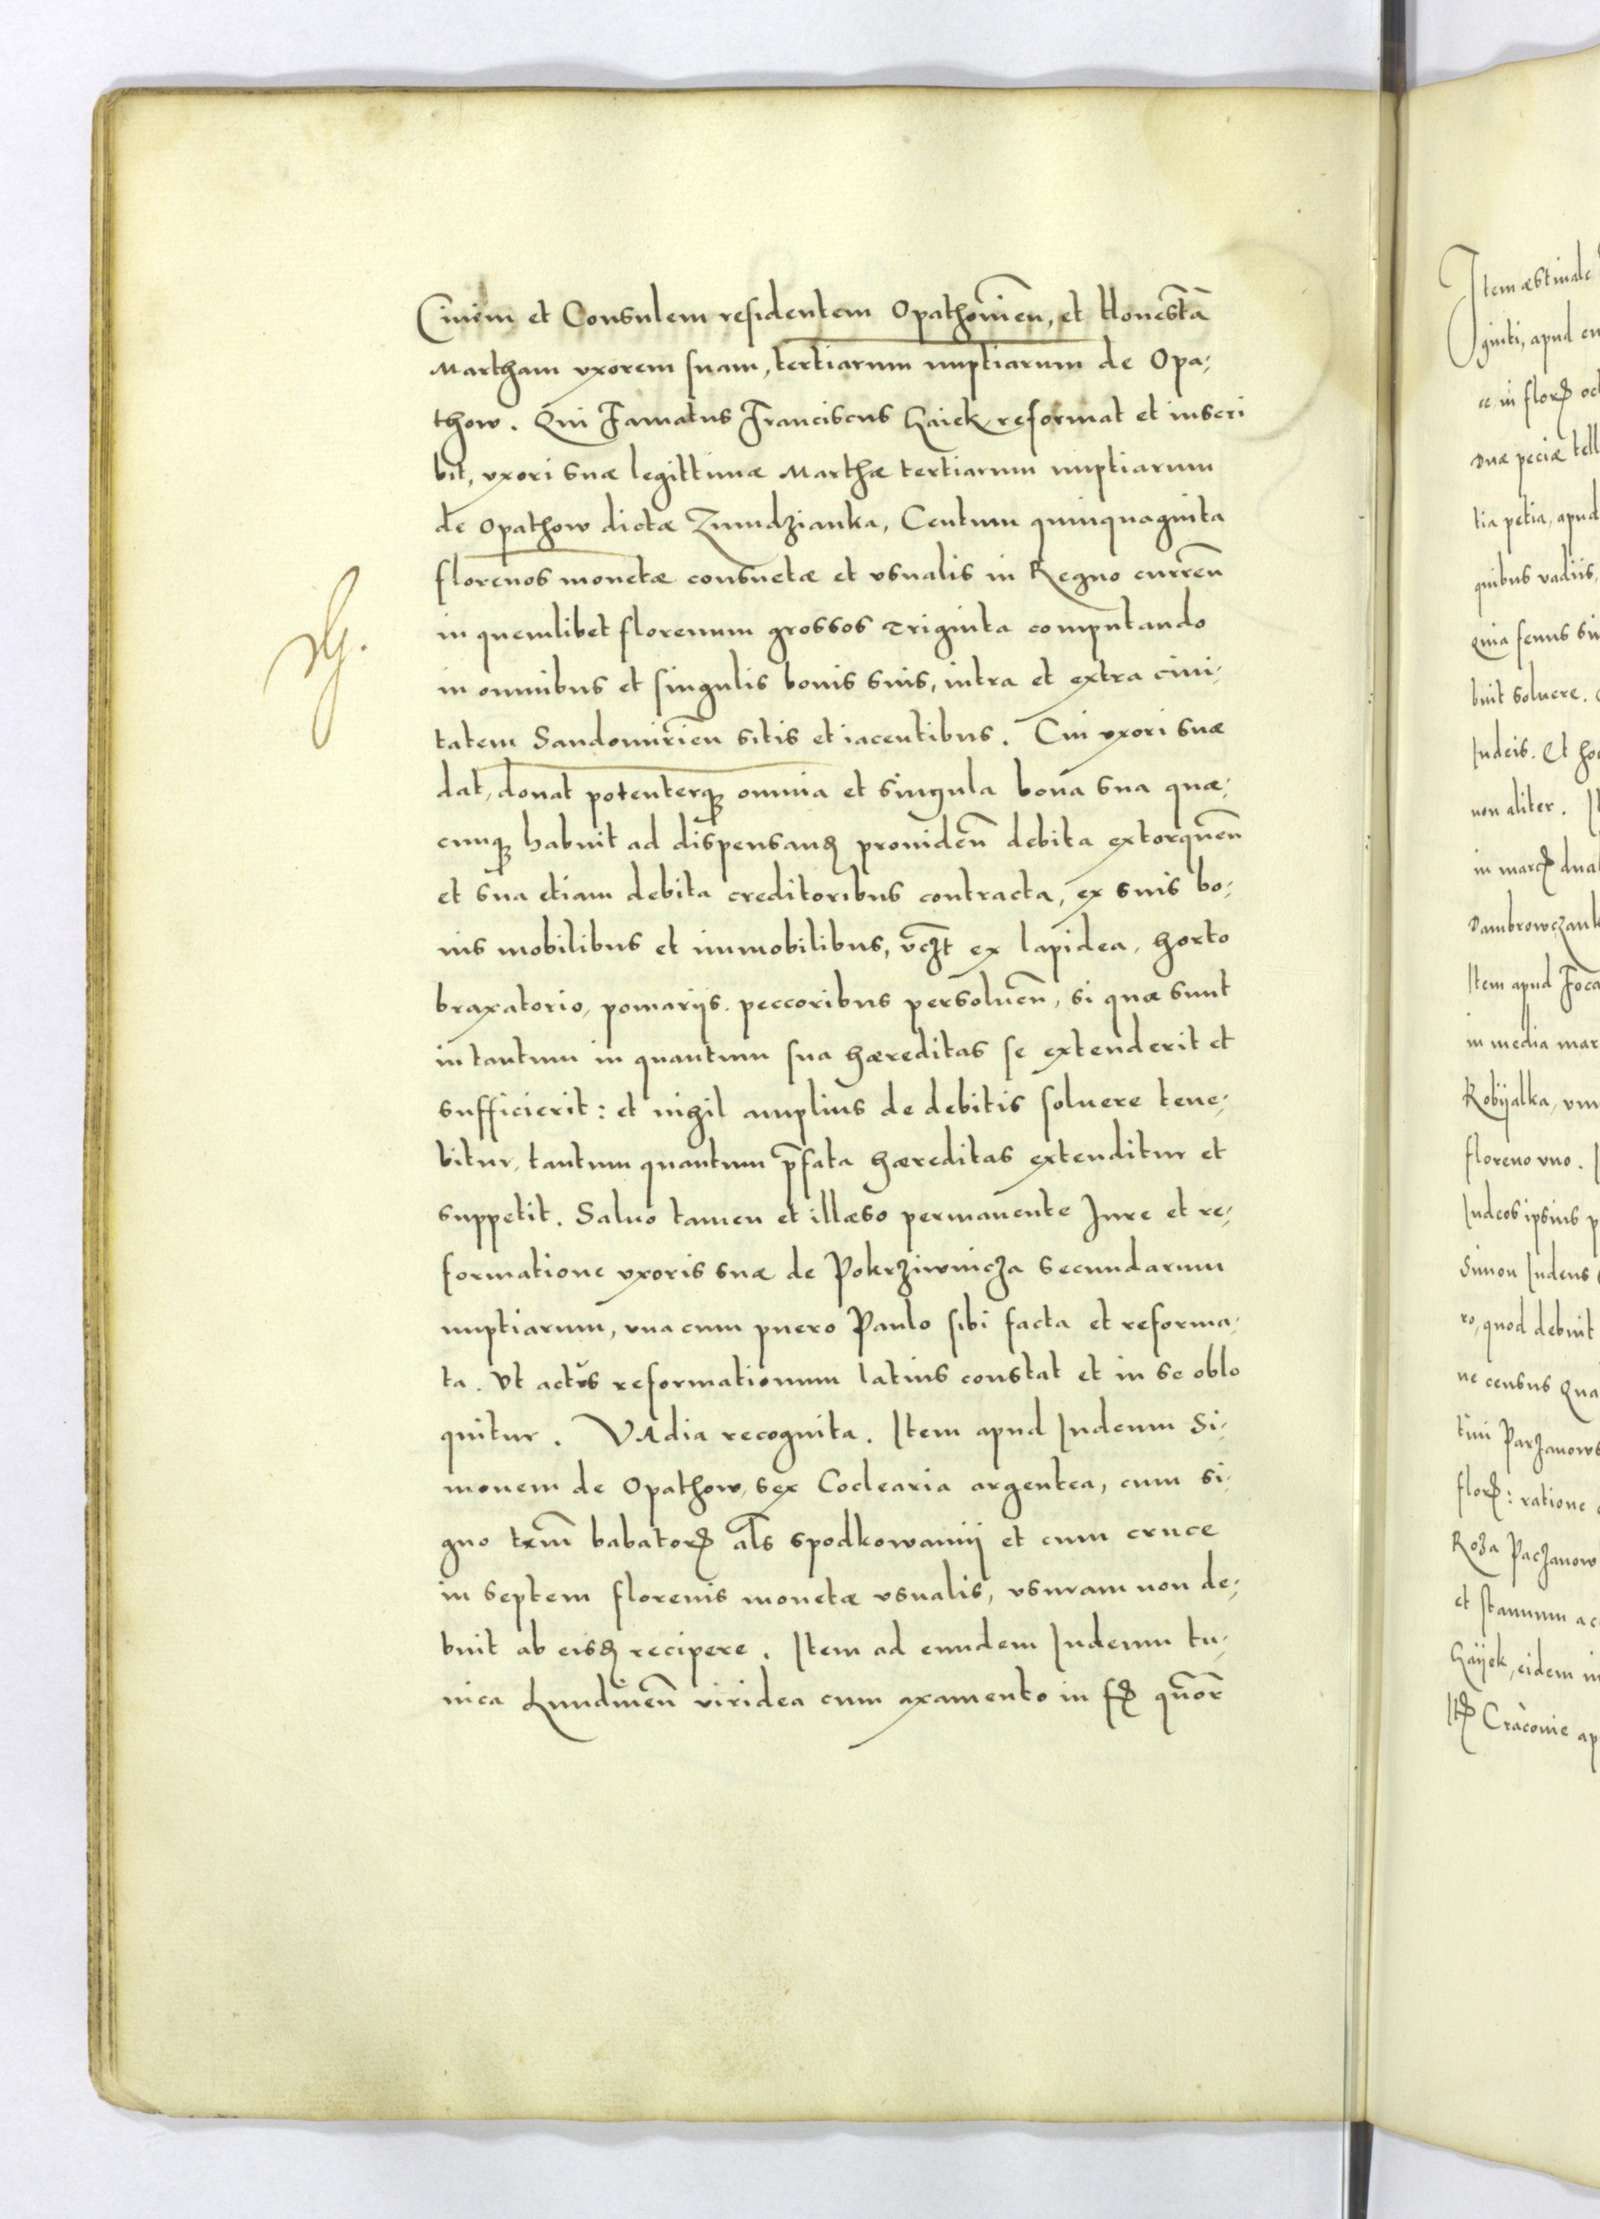 Ciuem et Consulem residentem Opathouien̄, et Honestā
Martham vxorem suam, tertiarum nuptiarum de Opa-
thow. Qui Famatus Franciscus Haiek reformat et inscri
bit, vxori suæ legittimæ Marthæ tertiarum nuptiarum
de Opathow dictæ Zmudzianka, Centum quinquaginta
florenos monetæ consuetæ et vsualis in Regno curren̄
in quemlibet florenum grossos Triginta computando
in omnibus et singulis bonis suis, intra et extra ciui-
tatem Sandomirien̄ sitis et iacentibus. Cui vxori suæ
dat, donat potenterqꝫ omnia et singula bona sua quæ-
cunqꝫ habuit ad dispensanꝸ prouiden̄ debita extorquen̄
et sua etiam debita creditoribus contracta, ex suis bo-
nis mobilibus et immobilibus, vc̄ꝫt ex lapidea, horto
braxatorio, pomariis, peccoribus persoluen̄, si quæ sunt
in tantum in quantum sua hæreditas se extenderit et
sufficierit: et nihil amplius de debitis soluere tene-
bitur, tantum quantum p̄fata hæreditas extenditur et
suppetit. Saluo tamen et illæso permanente Jure et re-
formatione vxoris suæ de Pokrziwnicza secundarum
nuptiarum, vna cum puero Paulo sibi facta et reforma-
ta. Vt actus reformationum latius constat et in se oblo
quitur. VAdia recognita. Item apud Iudeum Si-
monem de Opathow, sex Coclearia argentea, cum si-
gno trium babatorꝸ al̄s spodkowamij et cum cruce
in septem florenis monetæ vsualis, vsuram non de-
buit ab eisꝸ recipere. Item ad eundem Iudeum tu-
nica Lundinen̄ viridea cum axamento in fꝸ quōr
Item æstiuale
giuti, apud eu
in florꝸ oct
Duæ peciæ tell
tia petia, apud
quibus vadiis,
Quia fenus
buit soluere.
Iudeis. Et hoc
non aliter.
in marcꝸ dua
Dambrowczank
Item apud
in media mar
Robijalka,
floreno vno.
Iudeos ipsius p
Simon Iudeus
ro, quod debuit
ne census Qua
tini Parzanows
florꝸ: ratione
Roza Paczanow
et stannum
Haijek, eidem in
Itꝸ Cracouie ap